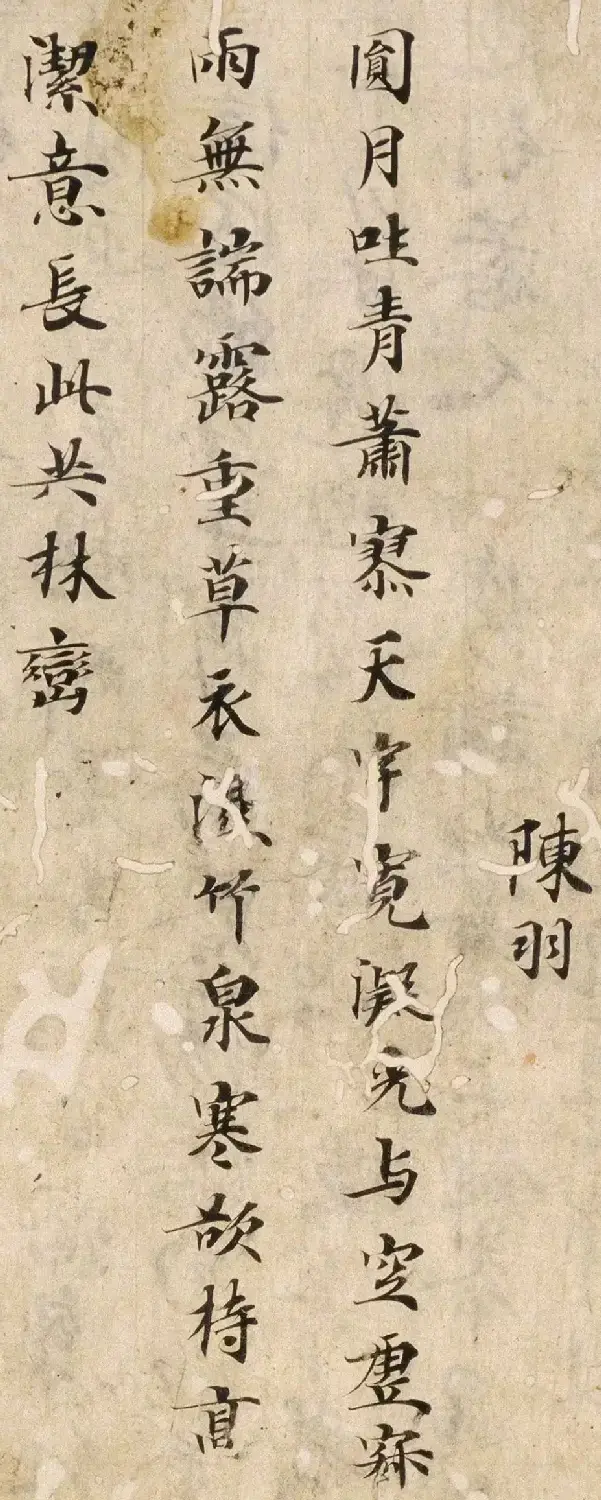 陳羽
圓月吐青蕭寥天宇寬凝光与空虛寂
兩無端露重草衣濕竹泉寒欲持高
潔意長此共林巒